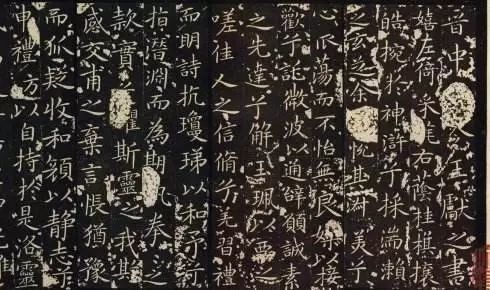 晉中王獻之書
嬉左倚采旄右蔭桂旗攘
皓捥於神滸兮採湍瀨
之玄芝余悅其淑美兮
心振蕩而不怡無良媒以接
歡兮託微波以通辭願誠素
之先達兮解玉珮以要之
嗟佳人之信脩兮羌習禮
而明詩抗瓊珶以和予兮
指潛淵而為期執之
款實兮懼斯靈之我欺
感交甫之棄言悵猶豫
而狐疑收和顏以静志兮
申禮防以自持於是洛靈